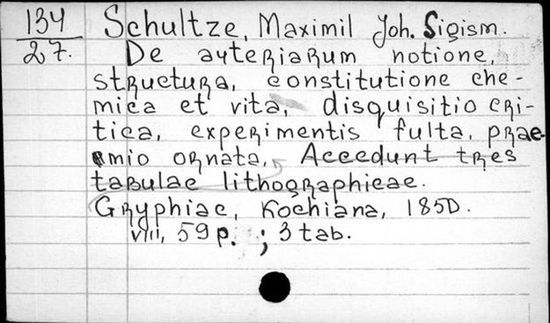 134
27.
Schultze, Maximil Joh. Sigism.
De arteriarum notione,
structura, constitutione che-
mica et vita, disquisitio cri-
tica, experimentis fulta, prae-
mio ornata, Accedunt tres
tabulae lithographicae.
Gryphiae, Kochiana, 1850.
VIII, 59 p. ; 3 tab.